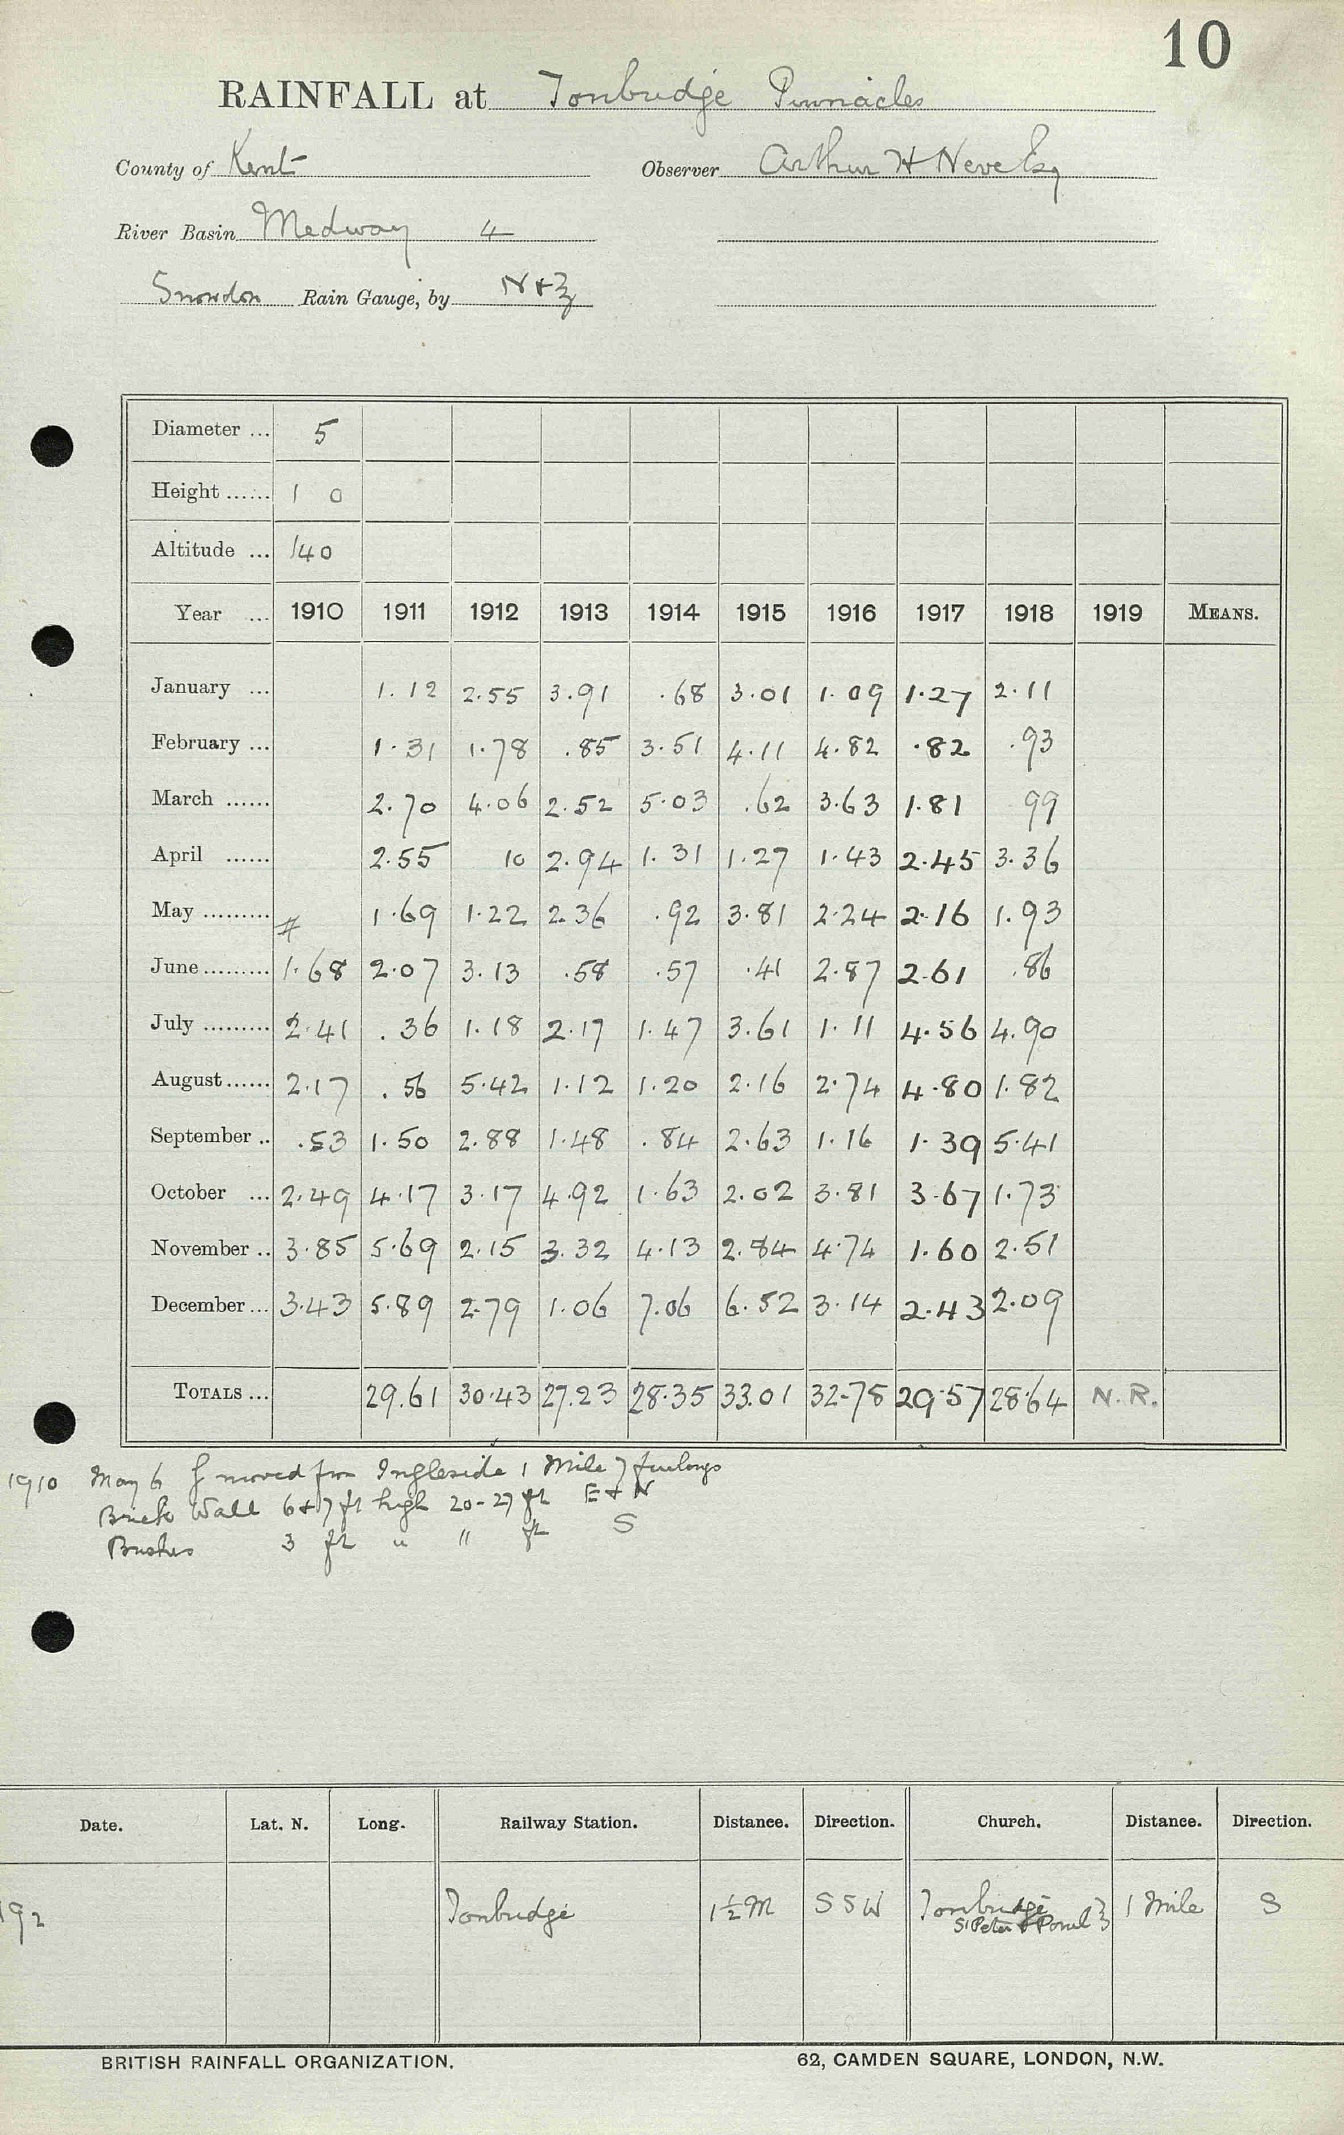 10
RAINFALL at Tonbridge Pinnacles
County of Kent Observer Arthur H Neve Esq
River Basin Medway 4
Snowdon Rain Gauge, by N & Z
Diameter ... 5
Height ...... 1 0
Altitude ... 140
Year ... 1910 1911 1912 1913 1914 1915 1916 1917 1918 1919 MEANS.
January ... 1.12 2.55 3.91 .68 3.01 1.09 1.27 2.11
February ... 1.31 1.78 .85 3.51 4.11 4.82 .82 .93
March ...... 2.70 4.06 2.52 5.03 .62 3.63 1.81 99
April ...... 2.55 10 2.94 1.31 1.27 1.43 2.45 3.36
May ......... # 1.69 1.22 2.36 .92 3.81 2.24 2.16 1.93
June ......... 1.68 2.07 3.13 .58 .57 .41 2.87 2.61 .86
July ......... 2.41 .36 1.18 2.17 1.47 3.61 1.11 4.56 4.90
August ...... 2.17 .56 5.42 1.12 1.20 2.16 2.74 4.80 1.82
September .. .53 1.50 2.88 1.48 .84 2.63 1.16 1.39 5.41
October ... 2.49 4.17 3.17 4.92 1.63 2.02 3.81 3.67 1.73
November .. 3.85 5.69 2.15 3.32 4.13 2.84 4.74 1.60 2.51
December ... 3.43 5.89 2.79 1.06 7.06 6.52 3.14 2.43 2.09
TOTALS ... 29.61 30.43 27.23 28.35 33.01 32.78 29.57 28.64 N.R.
1910 May 6 G moved from Ingleside 1 Mile 7 furlongs
Brick Wall 6 & 7 ft high 20-27 ft E & N
Bushes 3 ft " " ft S
Date. Lat. N. Long. Railway Station. Distance. Direction. Church. Distance. Direction.
192 Tonbridge 1½ M S S W Tonbridge 1 Mile S
St Peter & Paul
BRITISH RAINFALL ORGANIZATION. 62, CAMDEN SQUARE, LONDON, N.W.